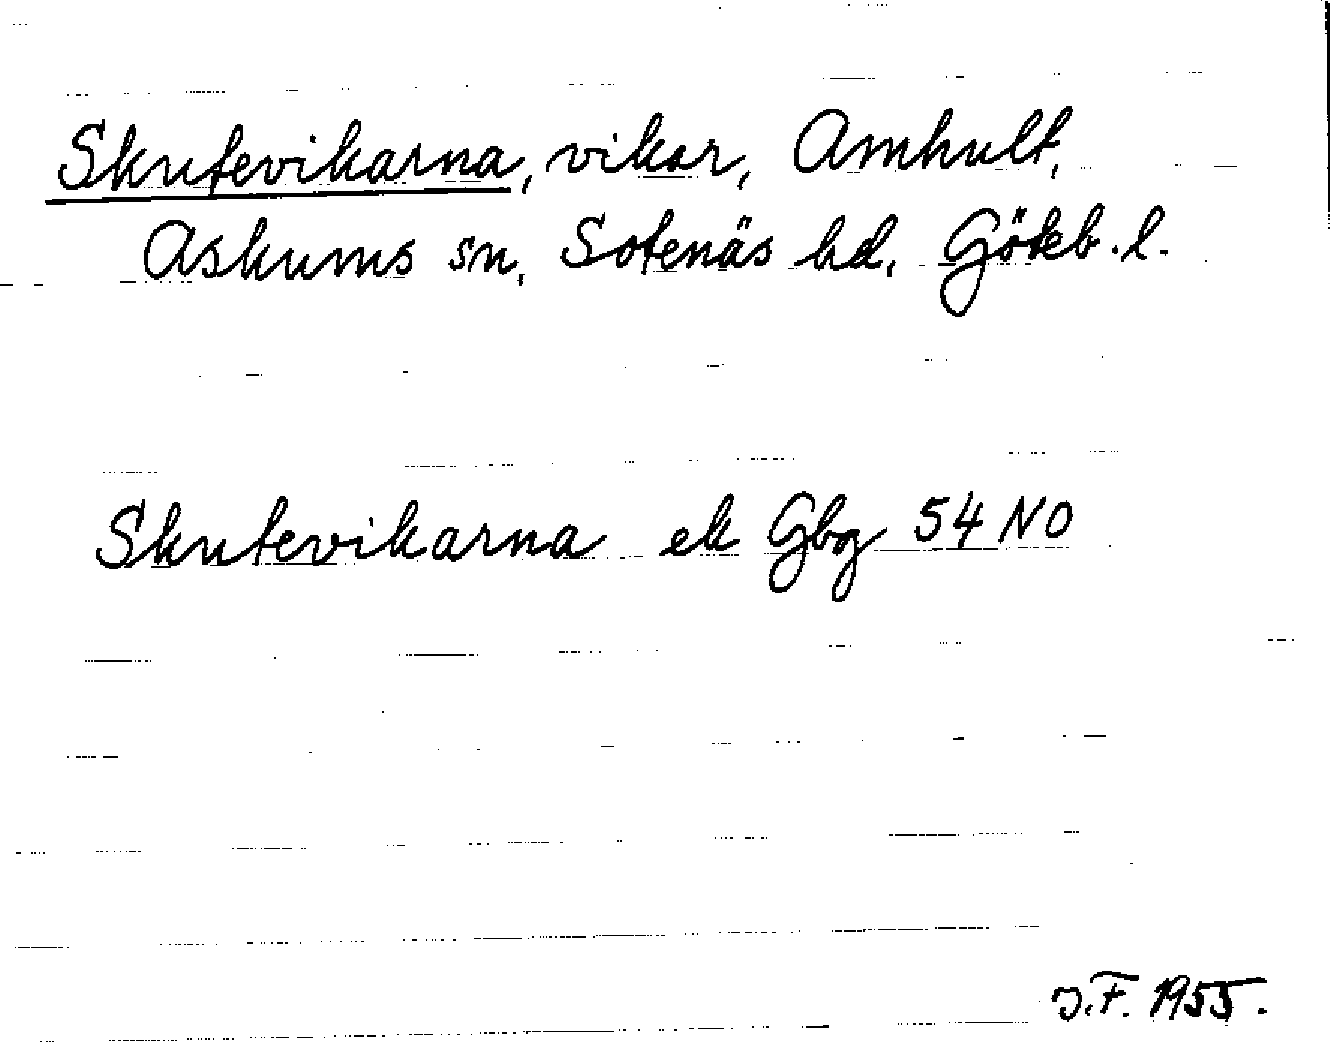 Skutevikarna, vikar, Amhult,
Askums sn, Sotenäs hd, Göteb. l.
Skutevikarna ek Gbg 54 NO
J.F. 1955.